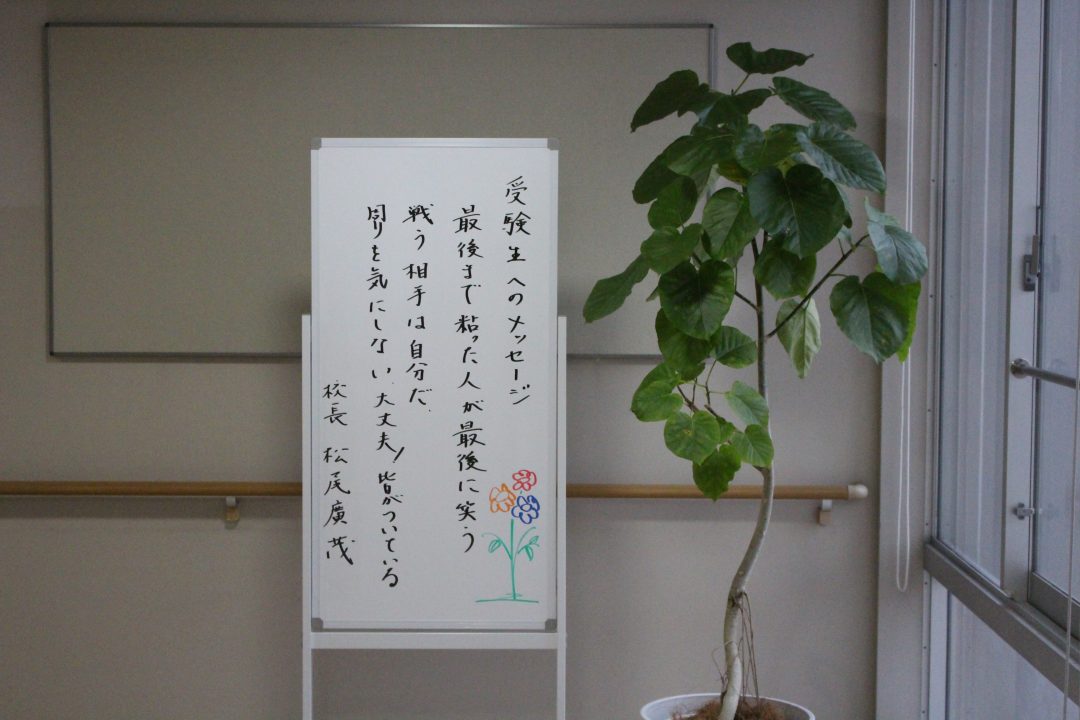 受験生へのメッセージ
最後まで粘った人が最後に笑う
戦う相手は自分だ、
周りを気にしない、大丈夫!皆がついている
校長 松尾廣茂